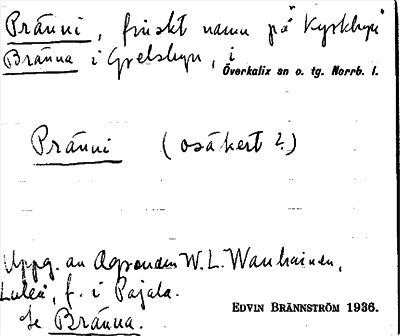 Pränni, finskt namn på Kyrkbyn
Bränna i Grelsbyn, i
Överkalix sn o. tg. Norrb. l.
Pränni (osäkert?)
Uppg. av Agronomen W. L. Wanhainen,
Luleå, f. i Pajala.
Se Bränna.
EDVIN BRÄNNSTRÖM 1936.